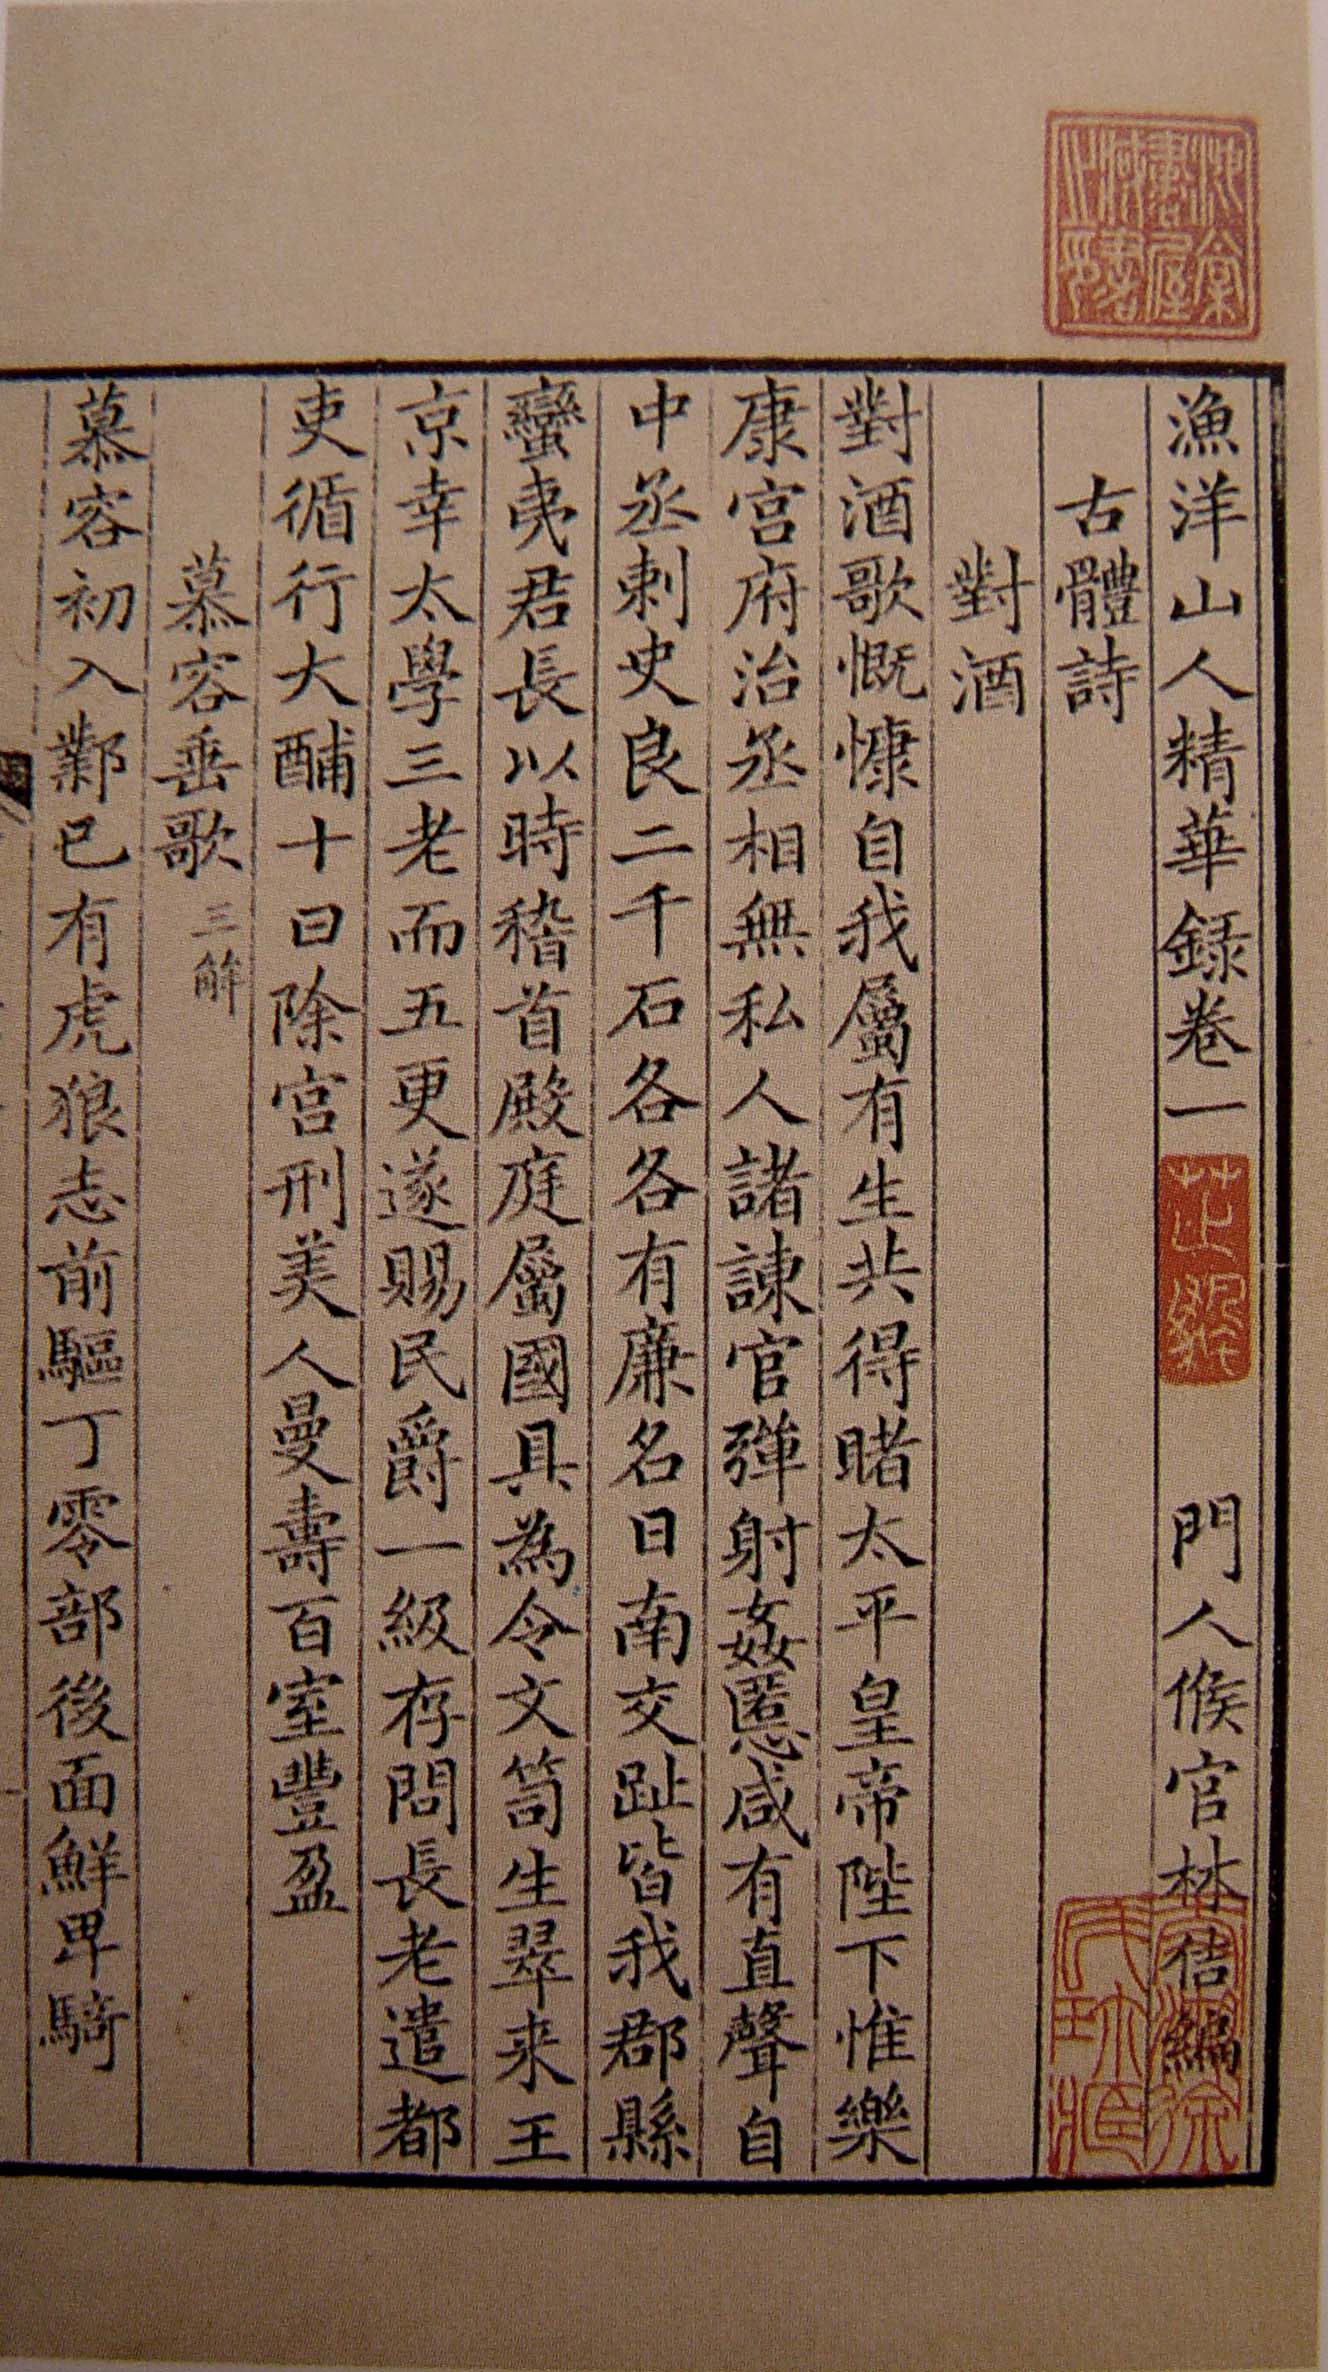 漁洋山人精華錄卷一 門人候官林佶編
古體詩
對酒
對酒歌慨慷自我屬有生共得睹太平皇帝陛下惟樂
康宮府治丞相無私人諸諫官彈射姦慝咸有直聲自
中丞刺史良二千石各各有廉名日南交趾皆我郡縣
蠻夷君長以時稽首殿庭屬國具為令文笥生翠來王
京幸太學三老而五更遂賜民爵一級存問長老遣都
吏循行大酺十日除宮刑美人曼壽百室豐盈
慕容垂歌 三解
慕容初入鄴已有虎狼志前驅丁零部後面鮮卑騎